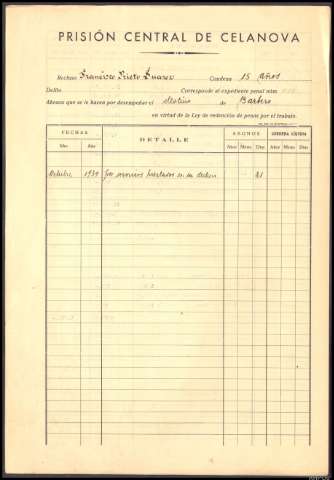 PRISIÓN CENTRAL DE CELANOVA
Recluso Francisco Prieto Suarez Condena 15 años
Delito Corresponde al expediente penal núm.
Abonos que se le hacen por desempeñar el destino de Barbero
en virtud de la Ley de redención de penas por el trabajo.
FECHAS DETALLE HECHOS
Mes Año Años Meses Días Años Meses Días
Octubre 1939 Por servicios prestados en su destino 21